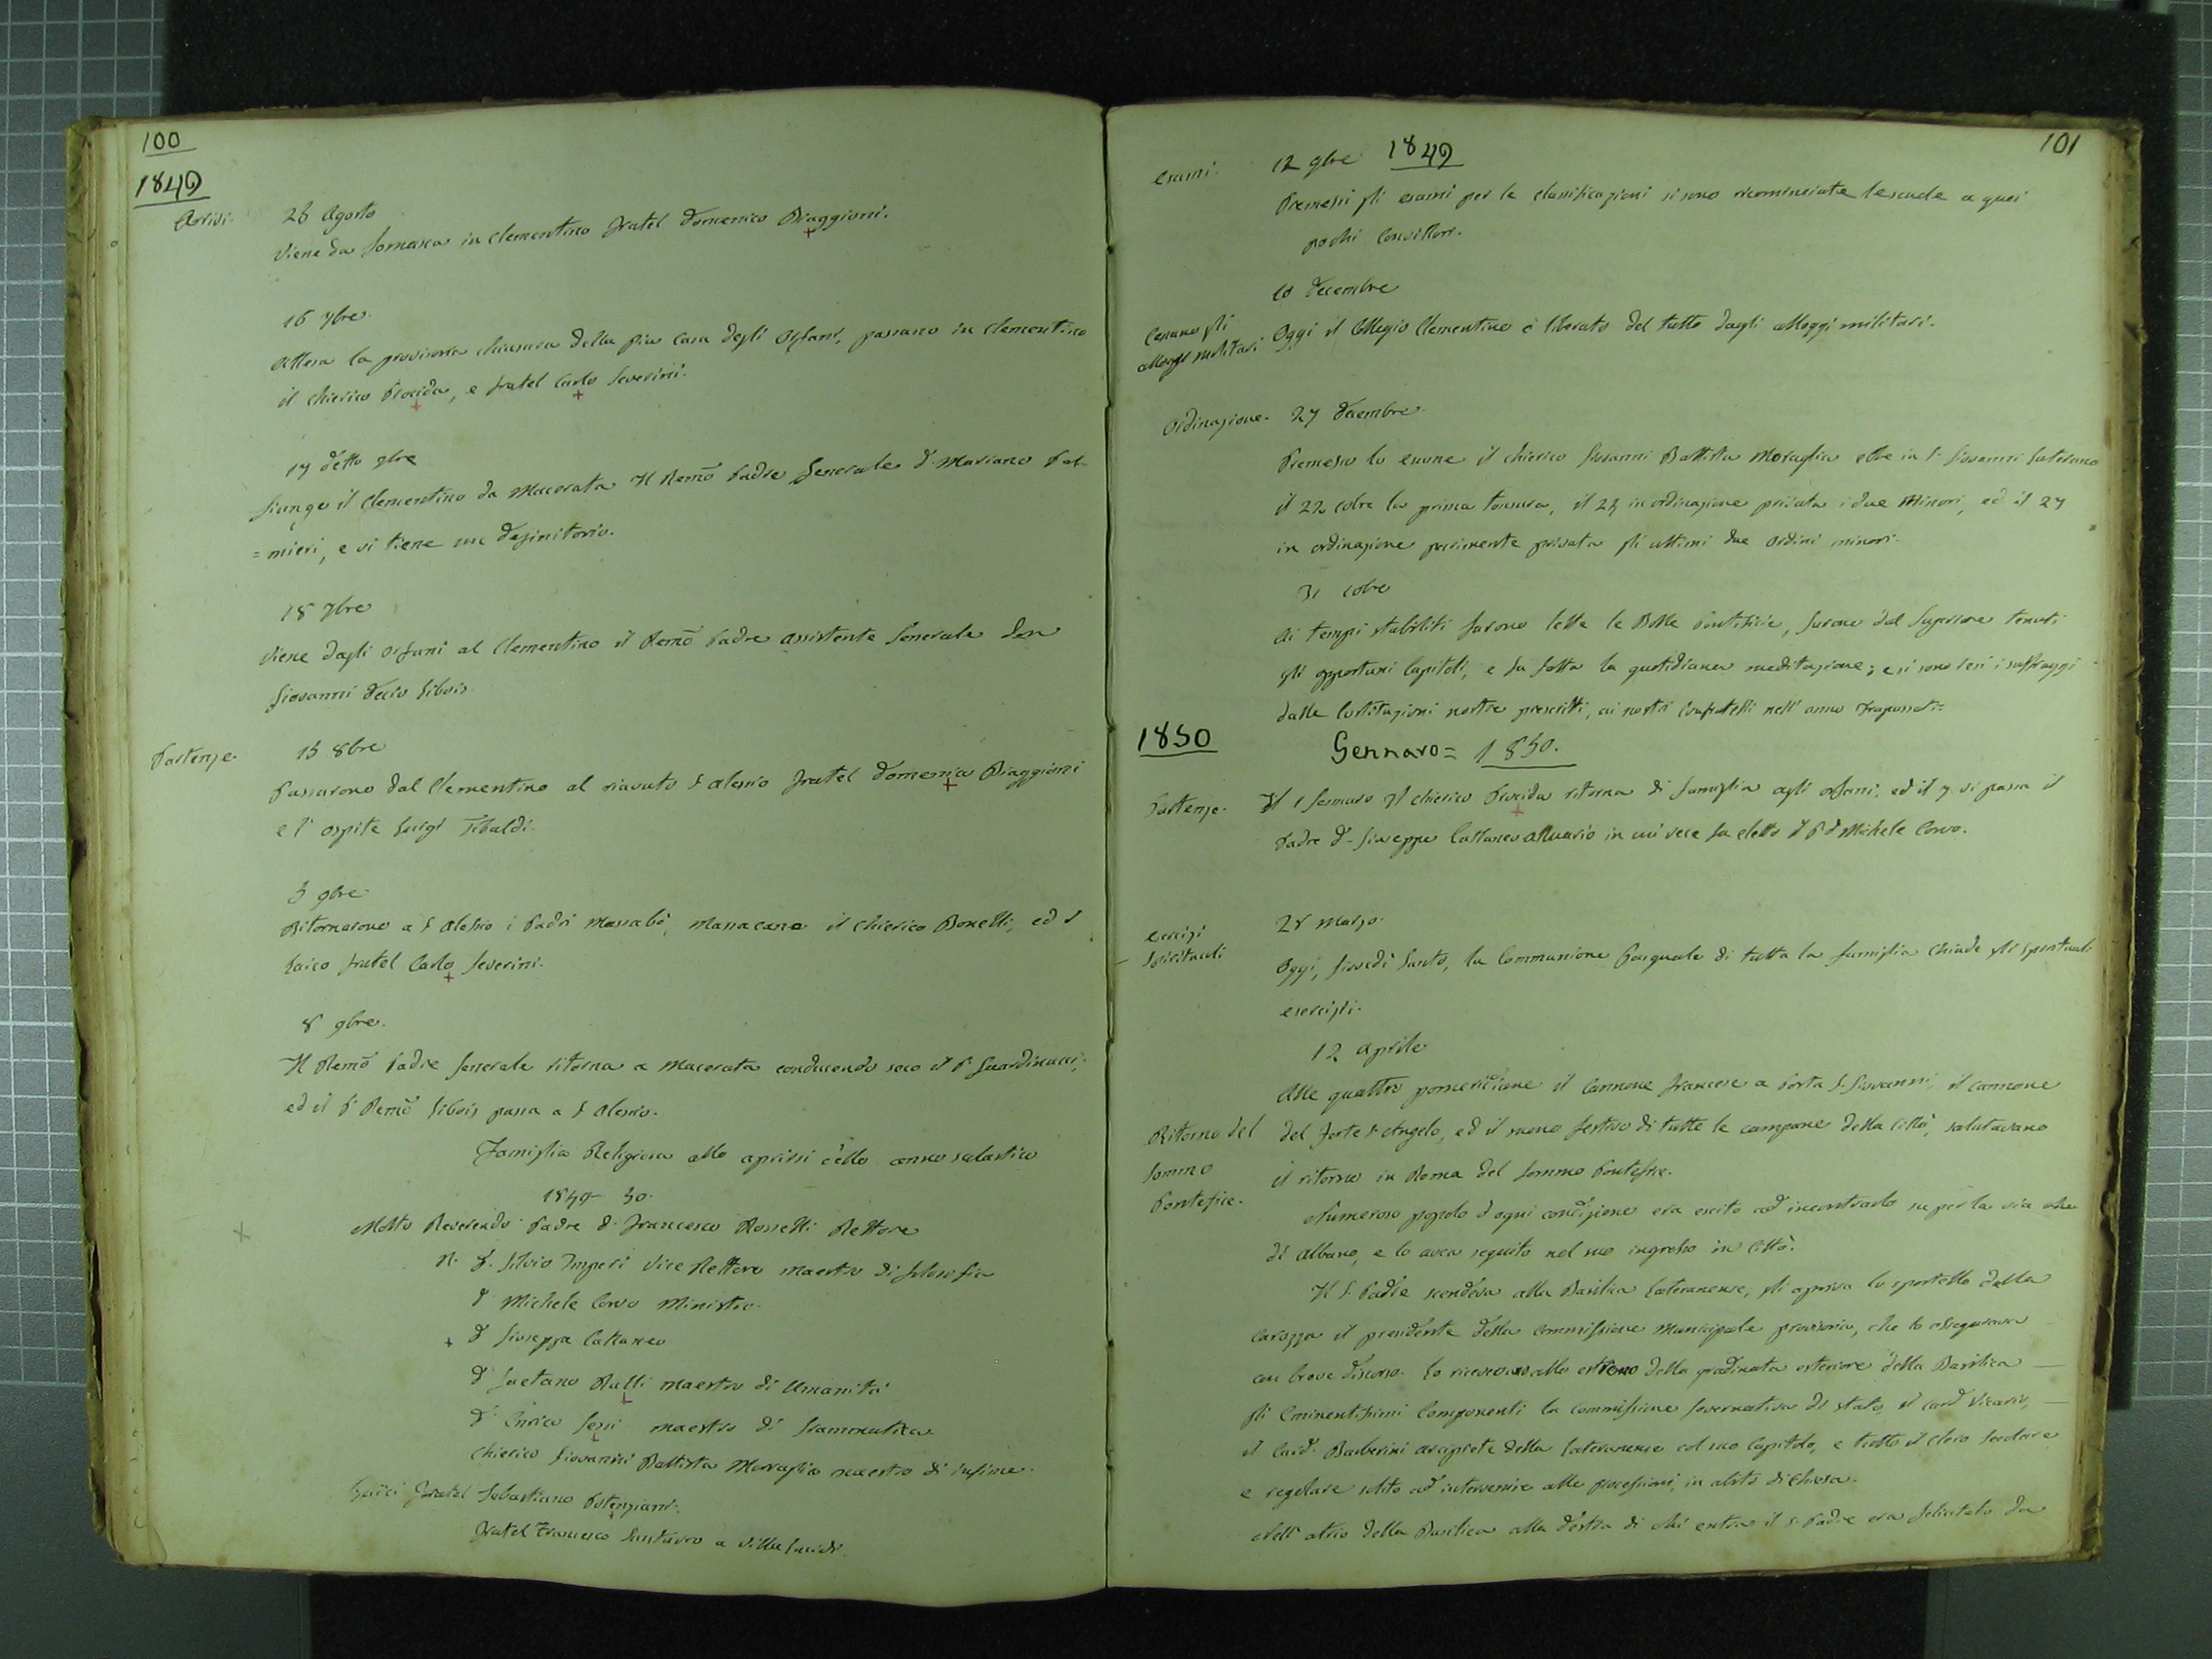 100
1849
Arrivi.
25 Agosto
Viene da Somasca in Clementino fratel Domenico Biaggioni.
16 7bre
Attesa la provisoria chiusura della pia Casa degli Orfani, passano in Clementino
il chierico Procida, e fratel Carlo Severini.
17 detto
Giunge il Clementino da Macerata Il Remo Padre Generale D. Mariano Pal-
=mieri, e vi tiene un definitorio.
18 7bre
Viene dagli Orfani al Clementino il Remo Padre assistente Generale Don
Giovanni Decio Libois.
Partenze.
15 8bre
Passarono dal Clementino al riavuto S. Alessio fratel Domenico Biaggioni
e l'ospite Luigi Tibaldi.
5 9bre
Ritornarono a S. Alessio i Padri Massabò, Massacano il Chierico Bonelli, ed il
Laico fratel Carlo Severini.
8 9bre.
Il Remo Padre Generale ritorna a Macerata conducendo seco il P. Guardinucci,
ed il P. Remo Libois passa a S. Alessio.
Famiglia Religiosa allo aprirsi dello anno scolastico
1849-50.
Molto Reverendo Padre D. Francesco Rosselli Rettore
D. Silvio Imperi Vice Rettore maestro di filosofia
D. Michele Corvo Ministro.
+ D. Giuseppe Cattaneo
D. Gaetano Rulli maestro di Umanità
D. Enrico Gessi maestro di Grammatica
Chierico Giovanni Battista Moraglia maestro di infime.
Laici Fratel Sebastiano Potenziani.
Fratel Francesco Santavro a Villa Lucidi.
101
1849
Esami.
12 9bre
Premessi gli esami per le classificazioni si sono ricominciate le scuole a quei
pochi Convittori.
10 Decembre
Cessano gli
alloggi militari
Oggi il Collegio Clementino è liberato del tutto dagli alloggi militari.
Ordinazione.
27 Decembre.
Premesso lo esame il chierico Giovanni Battista Moraglia ebbe in S. Giovanni Laterano
il 22 Xbre la prima tonsura, il 25 in ordinazione privata i due Minori, ed il 27
in ordinazione parimente privata gli ultimi due Ordini minori.
31 Xbre
Ai tempi stabiliti furono lette le Bolle Pontificie, furono dal Superiore tenuti
gli opportuni Capitoli, e fu fatta la quotidiana meditazione; e si sono resi i suffraggi
dalle Costituzioni nostre prescritti, ai nostri Confratelli nell'anno trapassati=
1850
Gennaro = 1850.
Partenze.
Il 1 Gennaro Il chierico Procida ritorna di famiglia agli orfani, ed il 7 vi passa il
Padre D. Giuseppe Cattaneo Attuario in cui vece fu eletto il P. D. Michele Corvo.
Esercizi
Spirituali
28 Marzo.
Oggi, Giovedì Santo, la Communione Pasquale di tutta la famiglia chiude gli spirituali
esercizi.
12 Aprile
Ritorno del
Sommo
Pontefice.
Alle quattro pomeridiane il Cannone francese a Porta S. Giovanni, il cannone
del Forte S. Angelo, ed il suono festivo di tutte le campane della Città, salutavano
il ritorno in Roma del Sommo Pontefice.
Numeroso popolo d'ogni condizione era escito ad incontrarlo su per la via che
di Albano, e lo avea seguito nel suo ingresso in Città.
Il S. Padre scendeva alla Basilica Lateranense, gli apriva lo sportello della
Carozza il presidente della Commissione Municipale provisoria, che lo ossequiava
con breve discorso. Lo ricevevano allo estremo della gradinata esteriore della Basilica
gli Eminentissimi Componenti la Commissione Governativa di Stato, il Card. Vicario,
il Card. Barberini arciprete della Lateranense col suo Capitolo, e tutto il clero secolare
e regolare solito ad intervenire alle processioni, in abito di Chiesa.
Nell'atrio della Basilica alla destra di chi entra il S. Padre era felicitato da